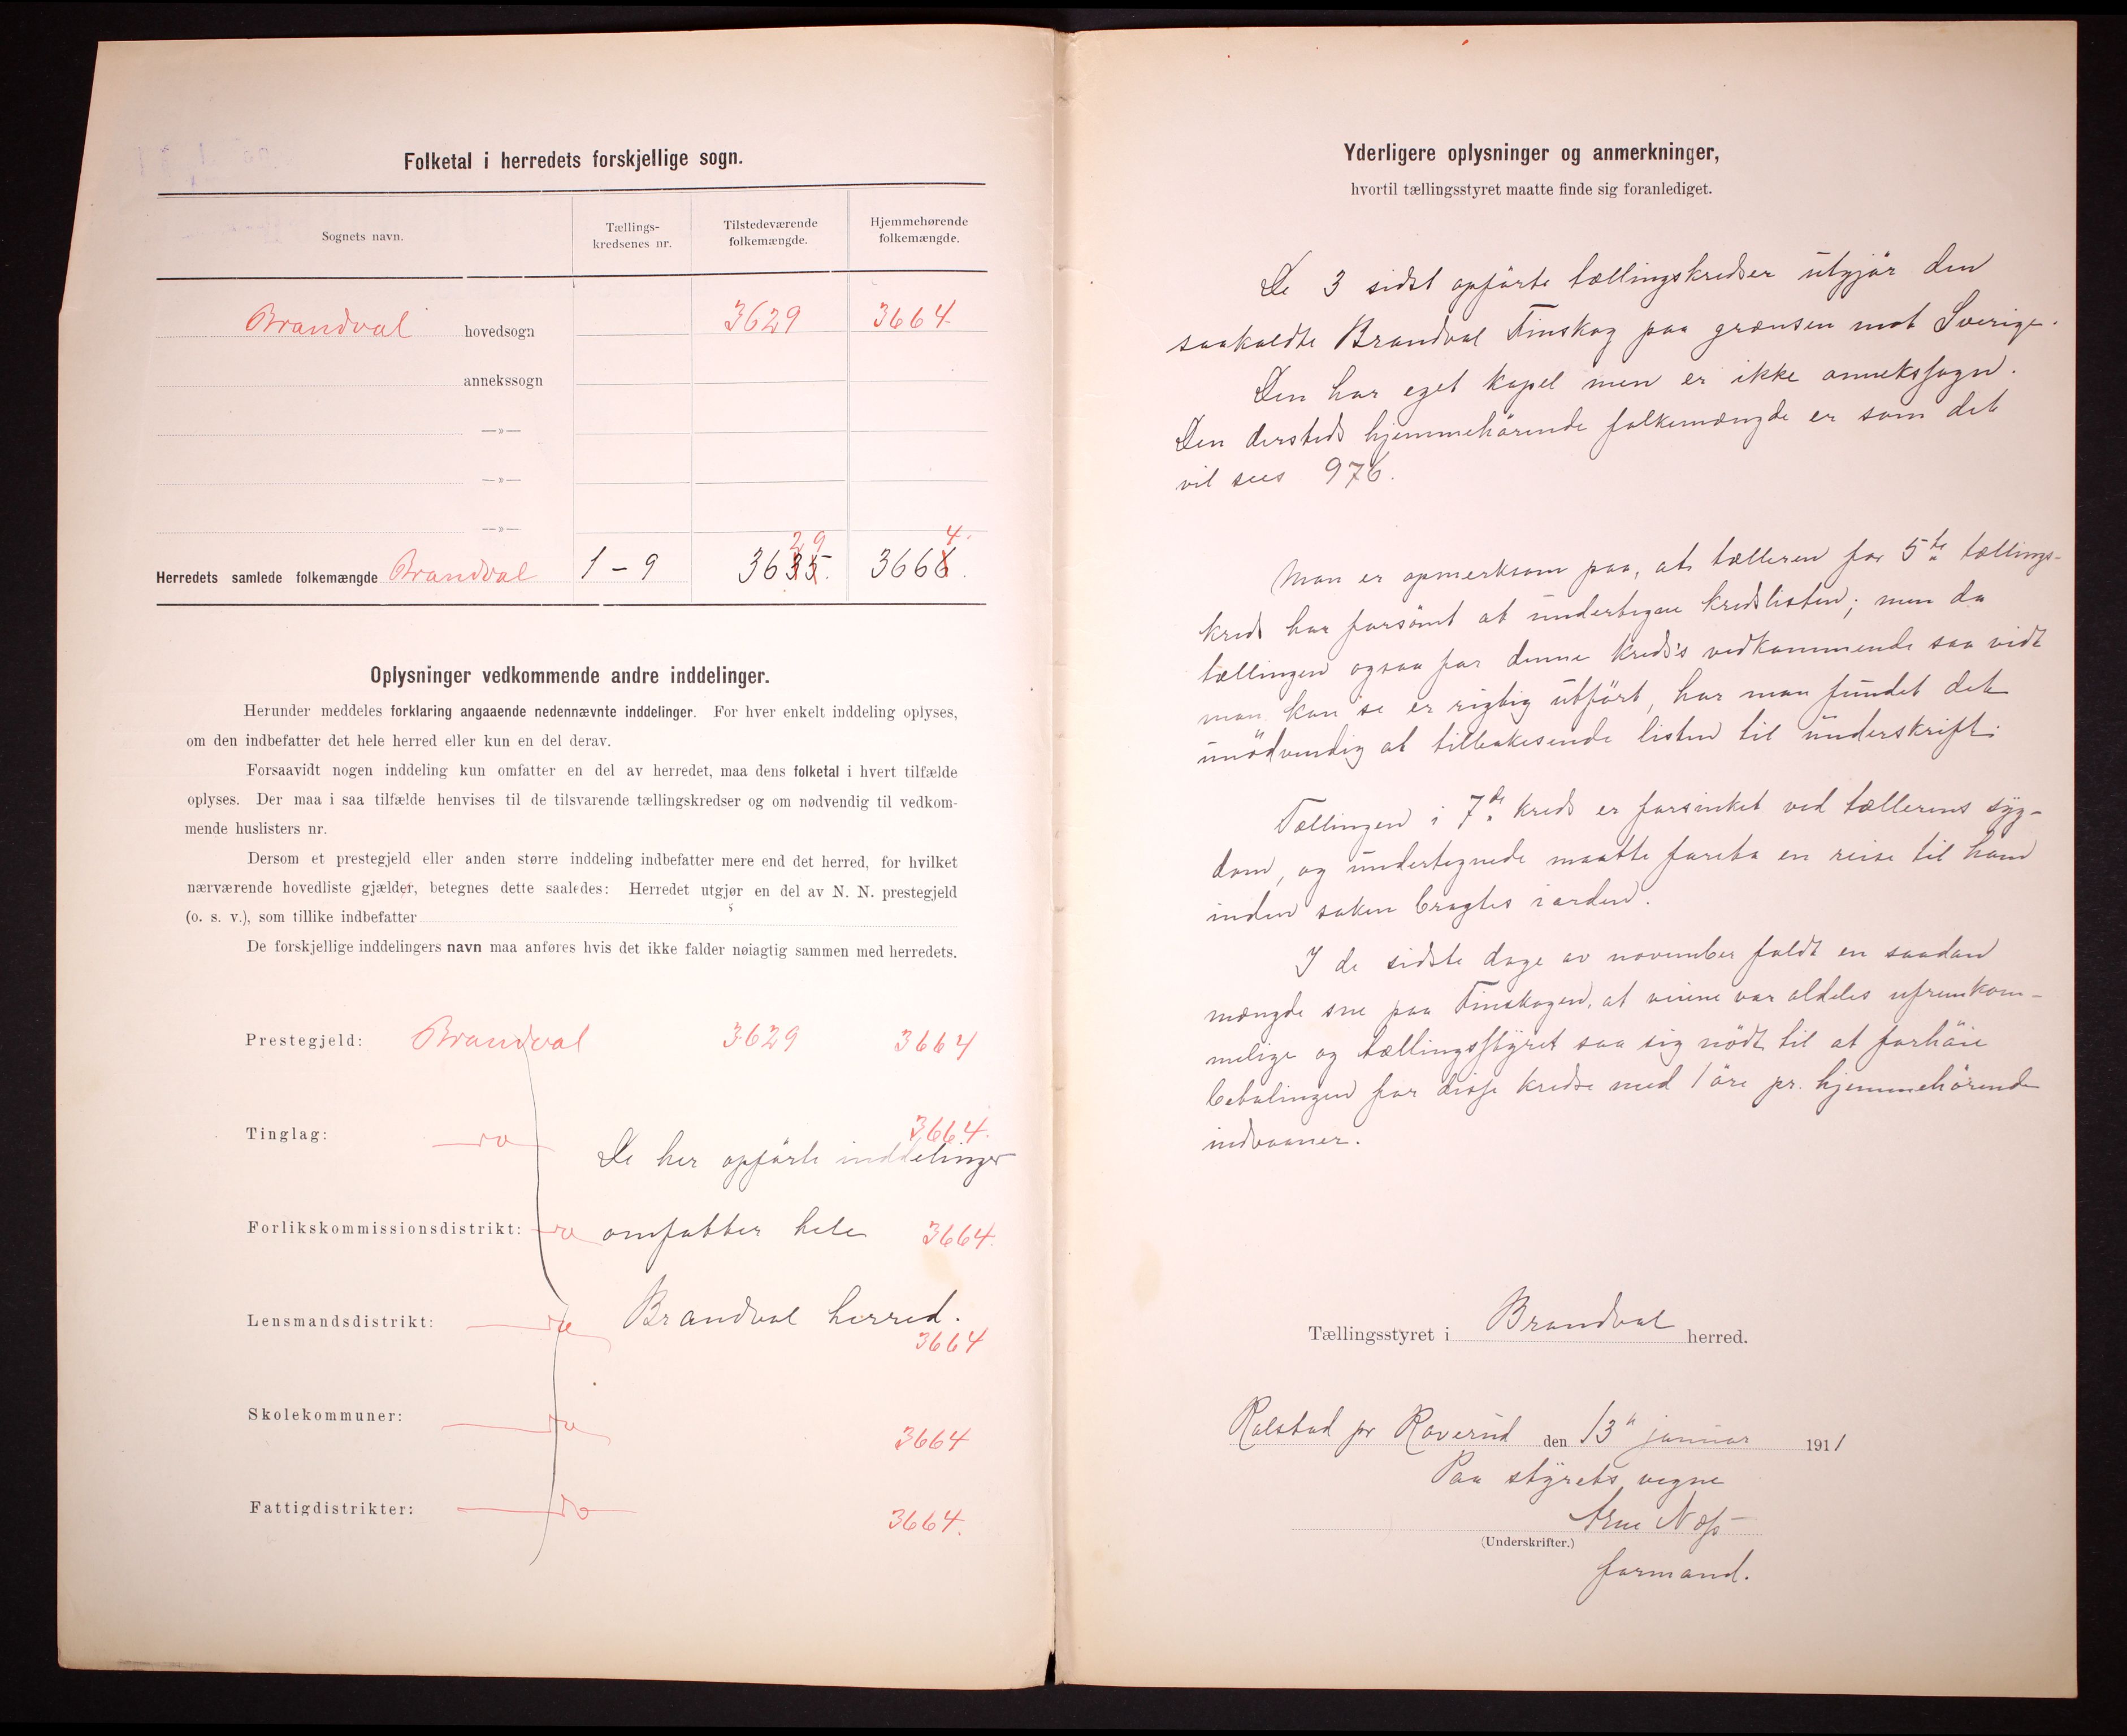 Folketal i herredets forskjellige sogn.
Sognets navn.
Tællings-
kredsenes nr.
Tilstedeværende
folkemængde.
Hjemmehørende
folkemængde.
Brandval hovedsogn 3629 3664
annekssogn
—»—
—»—
—»—
29 4.
Herredets samlede folkemængde Brandval 1 - 9 3635. 3666.
Oplysninger vedkommende andre inddelinger.
Herunder meddeles forklaring angaaende nedennævnte inddelinger. For hver enkelt inddeling oplyses,
om den indbefatter det hele herred eller kun en del derav.
Forsaavidt nogen inddeling kun omfatter en del av herredet, maa dens folketal i hvert tilfælde
oplyses. Der maa i saa tilfælde henvises til de tilsvarende tællingskredser og om nødvendig til vedkom-
mende huslisters nr.
Dersom et prestegjeld eller anden større inddeling indbefatter mere end det herred, for hvilket
nærværende hovedliste gjælder, betegnes dette saaledes: Herredet utgjør en del av N. N. prestegjeld
(o. s. v.), som tillike indbefatter
De forskjellige inddelingers navn maa anføres hvis det ikke falder nøiagtig sammen med herredets.
Prestegjeld: Brandval 3629 3664
Tinglag: do 3664.
De her opførte inddelinger
Forlikskommissionsdistrikt: do omfatter hele 3664.
Lensmandsdistrikt: do Brandval herred.
3664
Skolekommuner: do 3664
Fattigdistrikter: do 3664.
Yderligere oplysninger og anmerkninger,
hvortil tællingsstyret maatte finde sig foranlediget.
De 3 sidst opførte tællingskredser utgjör den
saakaldte Brandval Finskog paa grænsen mot Sverige.
Den har eget kapel men er ikke annekssogn.
Den dersteds hjemmehörende folkemængde er som det
vil sees 976.
Man er opmerksom paa, at tælleren for 5te tællings-
kreds har forsömt at undertegne kredslisten; men da
tællingen ogsaa for denne kreds's vedkommende saa vidt
man kan se er rigtig utfört, har man fundet det
unödvendig at tilbakesende listen til underskrift.
Tællingen i 7de kreds er forsinket ved tællerens syg-
dom, og undertegnede maatte foreta en reise til ham
inden saken bragtes iorden.
I de sidste dage av november faldt en saadan
mængde sne paa Finskogen, at veiene var aldeles ufremkom-
melige og tællingsstyret saa sig nödt til at forhöie
betalingen for disse kredse med 1 öre pr. hjemmehörende
indvaaner.
Tællingsstyret i Brandval herred.
Kalstad pr Roverud den 13de januar 1911
Paa styrets vegne
Arne Næss
(Underskrifter.)
formand.